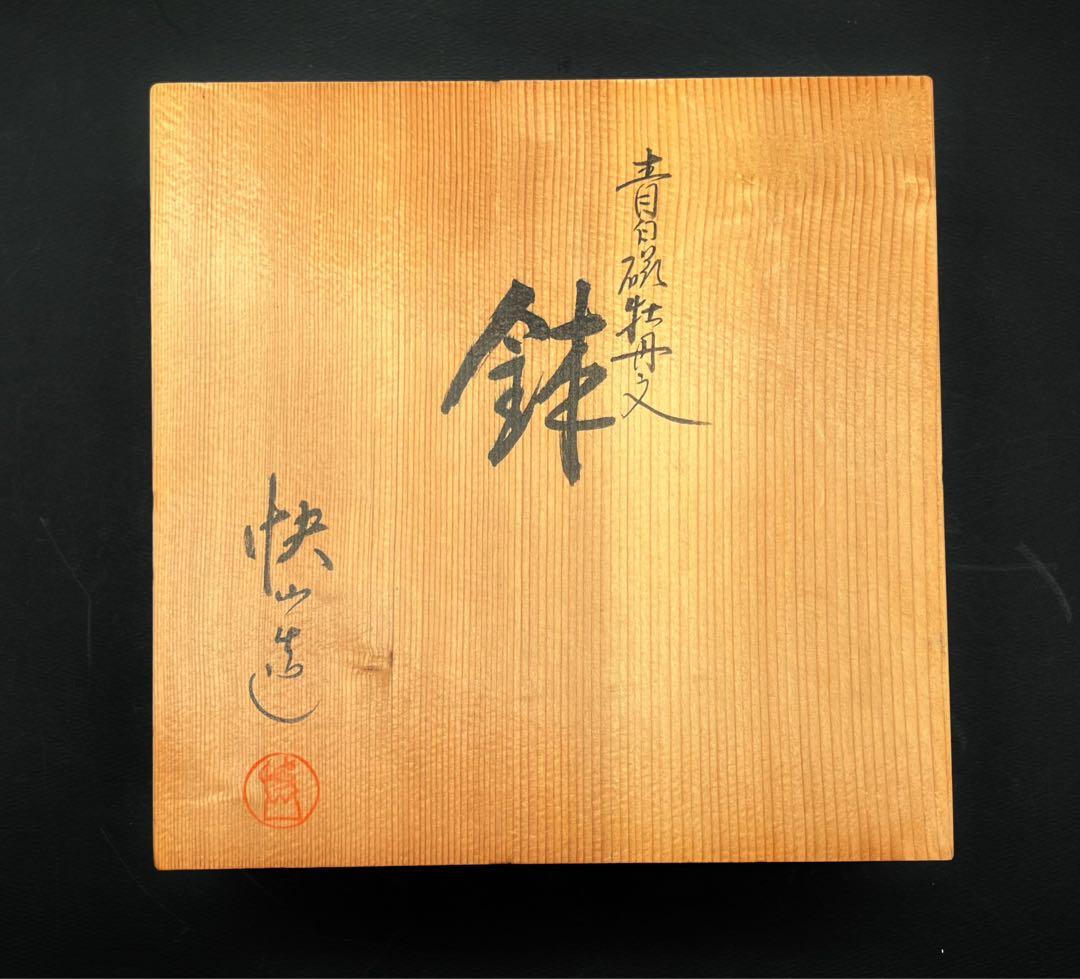 青白磁牡丹文
鉢
快山造